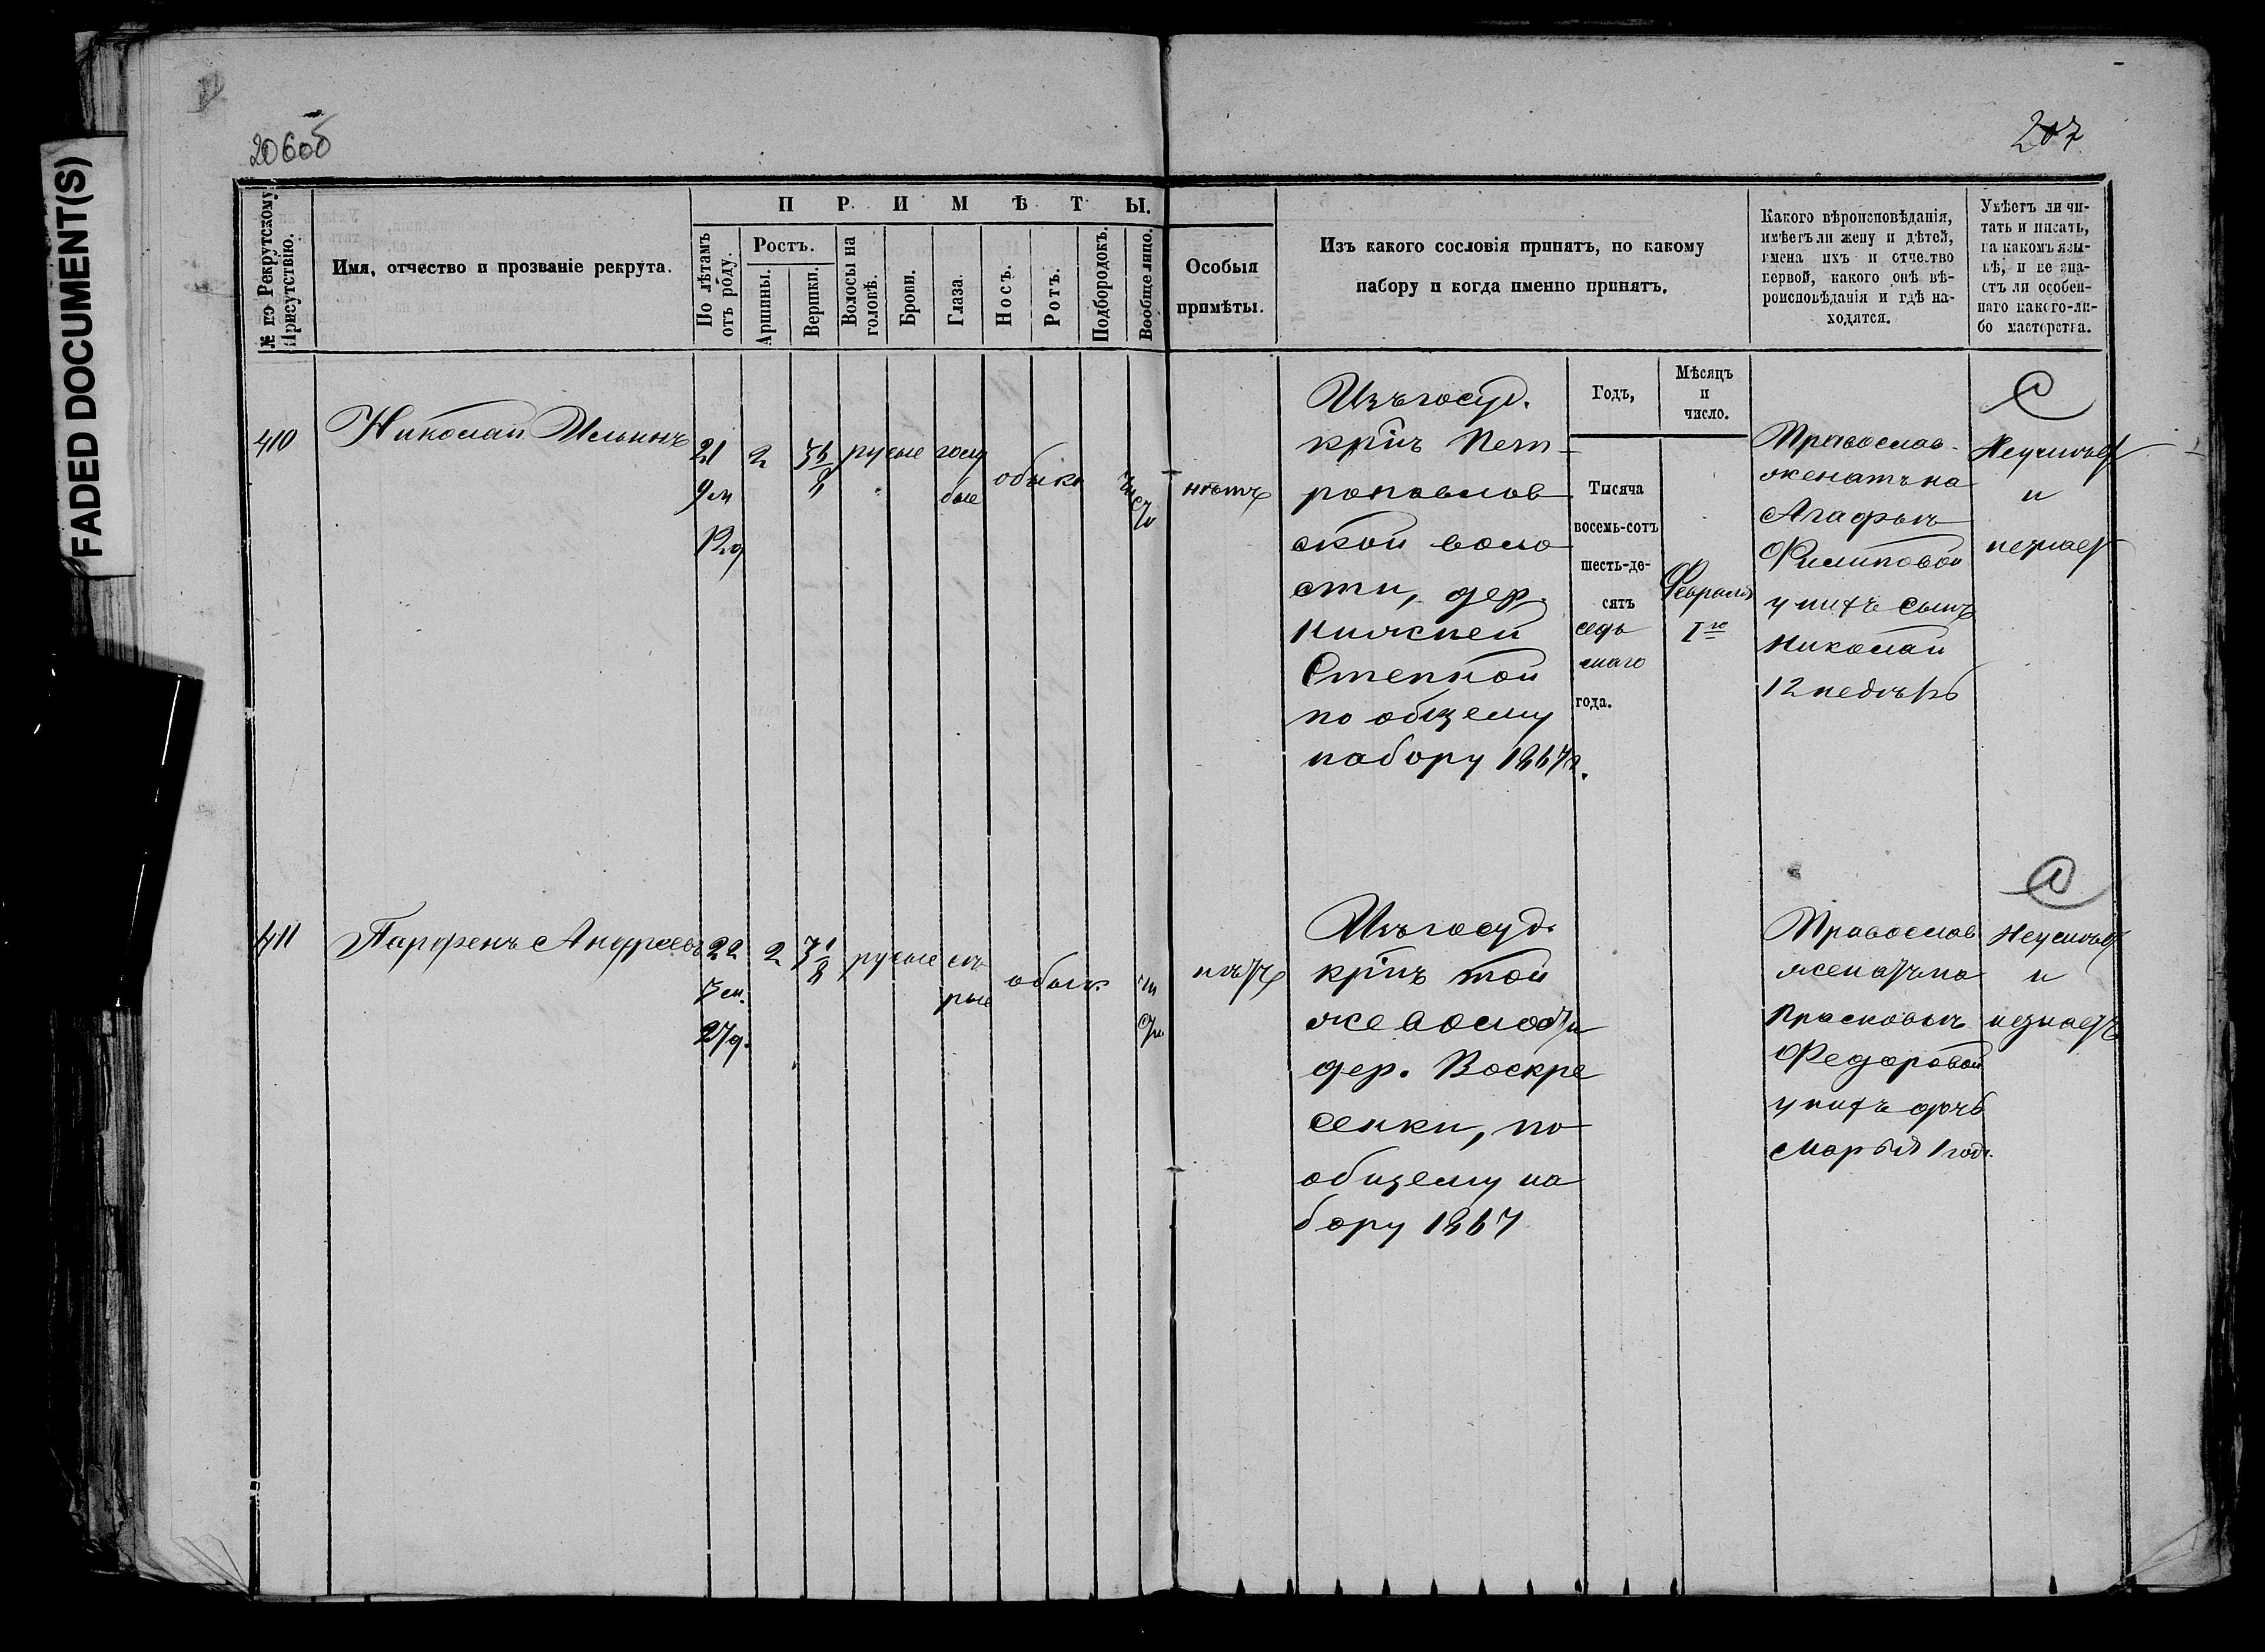 FADED DOCUMENT(S)
206об
207
№ по Рекрутскому Присутствію.
Имя, отчество и прозваніе рекрута.
П Р И М Ѣ Т Ы.
По лѣтамъ отъ роду.
Ростъ.
Аршины.
Вершки.
Волосы на головѣ.
Брови.
Глаза.
Носъ.
Ротъ.
Подбородокъ.
Вообще лицо.
Особыя
примѣты.
Изъ какого сословія принятъ, по какому
набору и когда именно принятъ.
Какого вѣроисповѣданія,
имѣетъ ли жену и дѣтей,
имена ихъ и отчество
первой, какого онѣ вѣ-
роисповѣданія и гдѣ на-
ходятся.
Умѣетъ ли чи-
тать и писать,
на какомъ язы-
кѣ, и не зна-
етъ ли особен-
наго какого-ли-
бо мастерства.
410
Николай Ильинъ
21
9 м
12 д
2
3 6/8
русые
голу
бые
обыкн
чи
сто
нѣтъ
Изъ госуд.
крнъ Пет-
ропавлов
ской воло
сти, дер.
Нижней
Степной
по общему
набору 1867 г.
Годъ,
Тысяча
восемь-сотъ
шесть-де-
сятъ
седь
маго
года.
Мѣсяцъ
и
число.
Февраля
1го
Православ.
женатъ на
Агафьѣ
Филиповой
у нихъ сынъ
Николай
12 недѣль
Неумѣет
и
незнает
411
Парфенъ Андреевъ
22
7 м.
27 д.
2
3 1/8
русые
сѣ
рые
обыкн.
чи
сто
нѣтъ
Изъ госуд.
крнъ той
же волости
дер. Воскре
сенки, по
общему на
бору 1867
Православ
женатъ на
Прасковьѣ
Федоровой
у нихъ дочь
Марья 1 год.
Неумѣет
и
незнаетъ